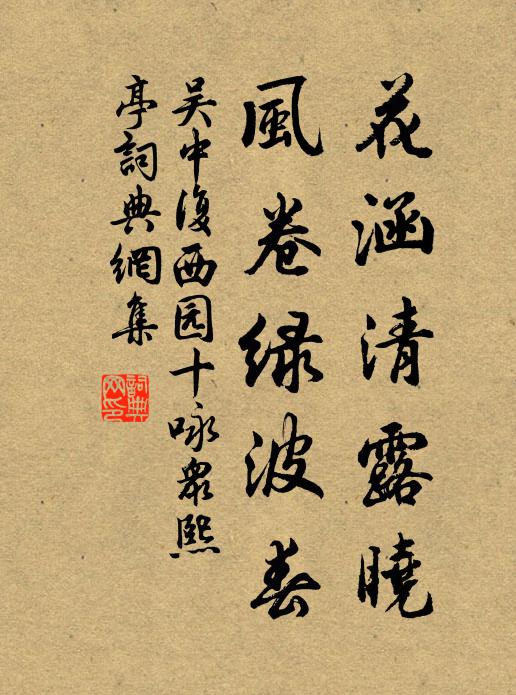 花涵清露曉
風卷绿波春
吴中復西园十咏眾熙
亭詞典網集
詞典
网印